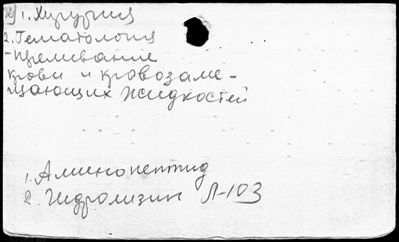 1. Хирургия
2. Гематология
- Переливание
крови и кровозаме-
щающих жидкостей
1. Аминопептид
2. Гидролизин Л-103